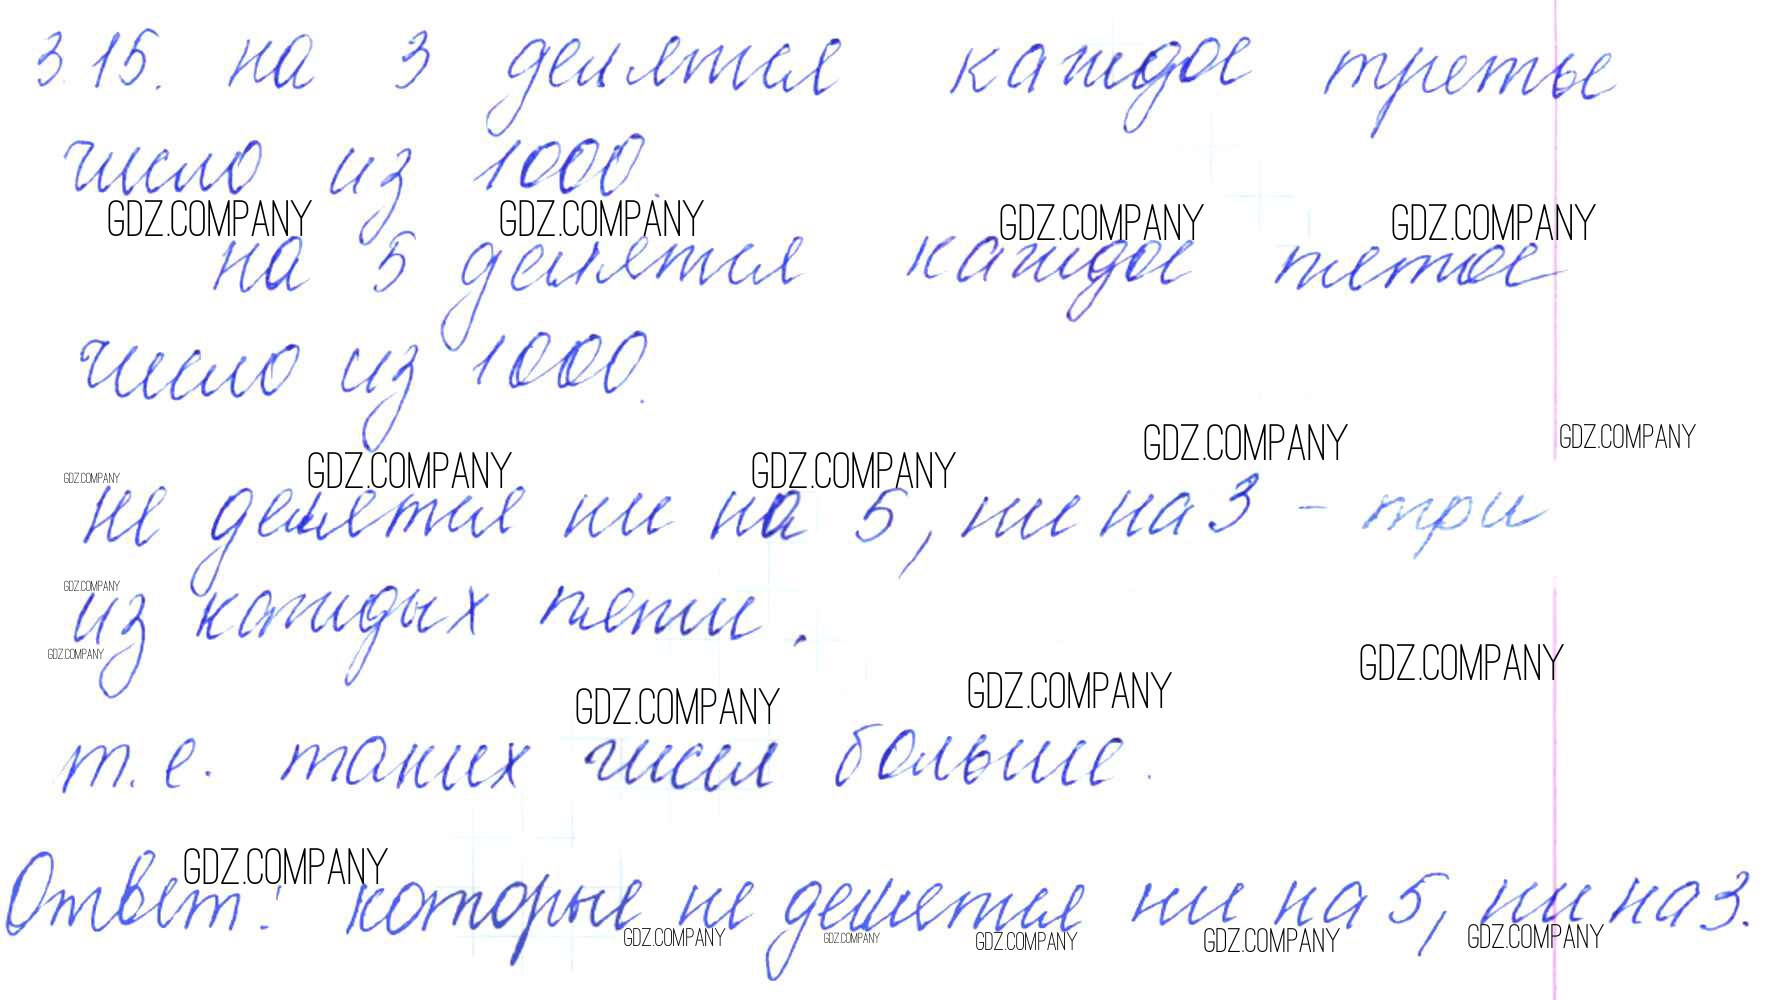 3.15. на 3 делятся каждое третье
число из 1000.
GDZ.COMPANY GDZ.COMPANY GDZ.COMPANY GDZ.COMPANY
на 5 делятся каждое пятое
число из 1000.
GDZ.COMPANY GDZ.COMPANY
GDZ.COMPANY GDZ.COMPANY GDZ.COMPANY
не делятся ни на 5, ни на 3 – три
GDZ.COMPANY
из каждых пяти.
GDZ.COMPANY
GDZ.COMPANY GDZ.COMPANY GDZ.COMPANY
т.е. таких чисел больше.
GDZ.COMPANY
Ответ: которые не делятся ни на 5, ни на 3.
GDZ.COMPANY GDZ.COMPANY GDZ.COMPANY GDZ.COMPANY GDZ.COMPANY